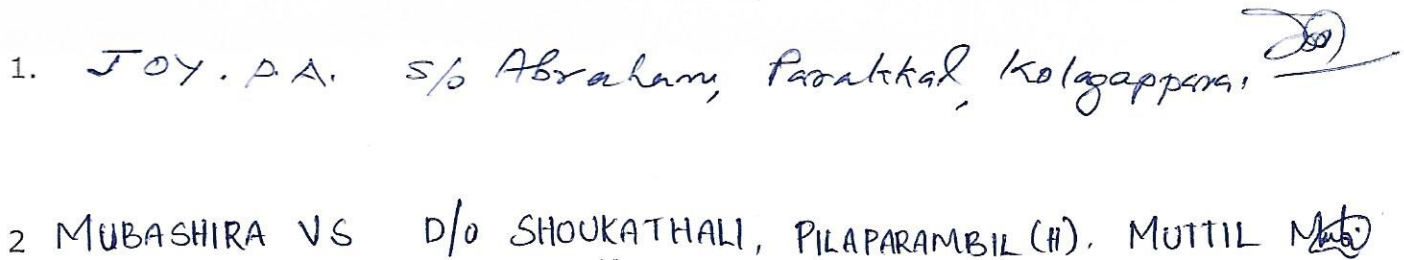 1. JOY. P.A. S/o Abraham, Parakkal, Kolagappara,
2 MUBASHIRA VS D/O SHOUKATHALI, PILAPARAMBIL (H). MUTTIL